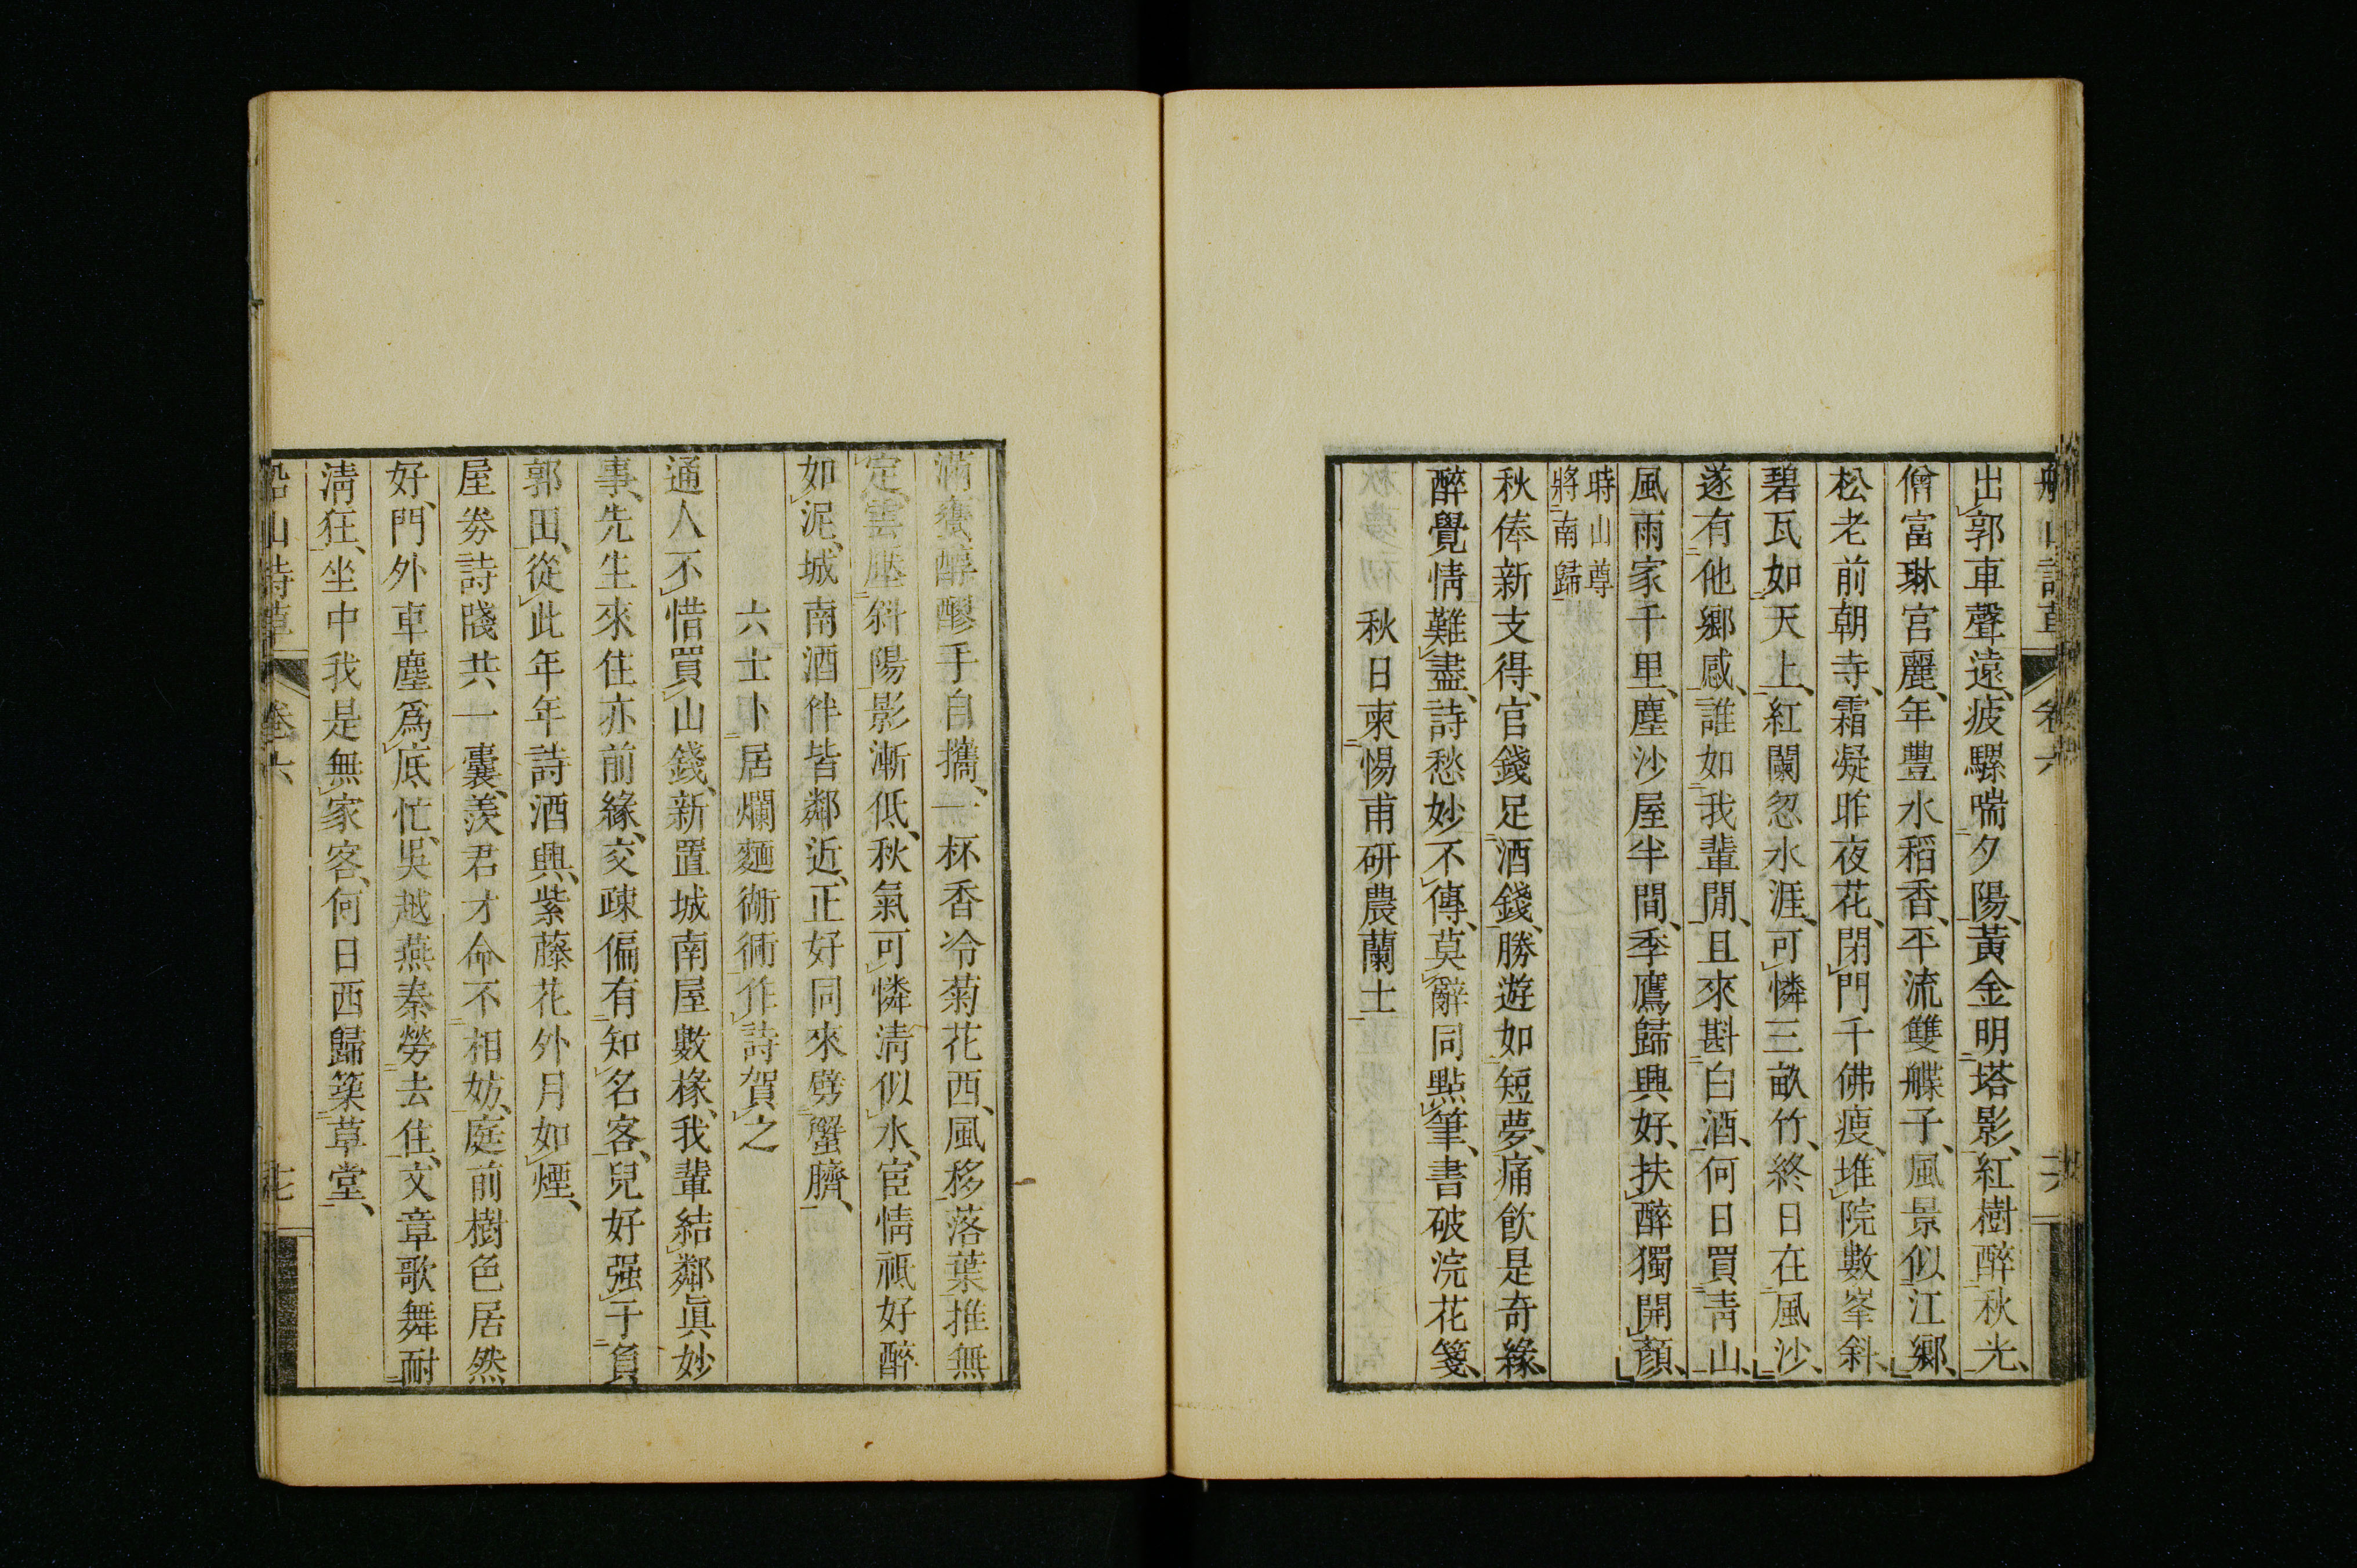 船山詩草 卷六 六
出郭車聲遠、疲騾喘夕陽、黃金明塔影、紅樹醉秋光、
僧富琳宮麗、年豊水稻香、平流雙艓子、風景似江鄉、
松老前朝寺、霜凝昨夜花、閉門千佛瘦、堆院數峯斜、
碧瓦如天上、紅闌忽水涯、可憐三畝竹、終日在風沙、
遂有他鄉感、誰如我輩閒、且來斟白酒、何日買靑山、
風雨家千里、塵沙屋半間、季鷹歸興好、扶醉獨開顏、
時山尊
將南歸
秋俸新支得、官錢足酒錢、勝遊如短夢、痛飮是奇緣、
醉覺情難盡、詩愁妙不傳、莫辭同點筆、書破浣花箋、
秋日柬惕甫硏農蘭士
滿甕醇醪手自攜、一杯香冷菊花西、風移落葉推無
定、雲壓斜陽影漸低、秋氣可憐淸似水、宦情祗好醉
如泥、城南酒伴皆鄰近、正好同來劈蟹臍、
六士卜居爛麵衚衕作詩賀之
通人不惜買山錢、新置城南屋數椽、我輩結鄰眞妙
事、先生來住亦前緣、交疎偏有知名客、兒好强于負
郭田、從此年年詩酒興、紫藤花外月如煙、
屋券詩牋共一囊、羨君才命不相妨、庭前樹色居然
好、門外車塵爲底忙、吳越燕秦勞去住、文章歌舞耐
淸狂、坐中我是無家客、何日西歸築草堂、
船山詩草 卷六 七